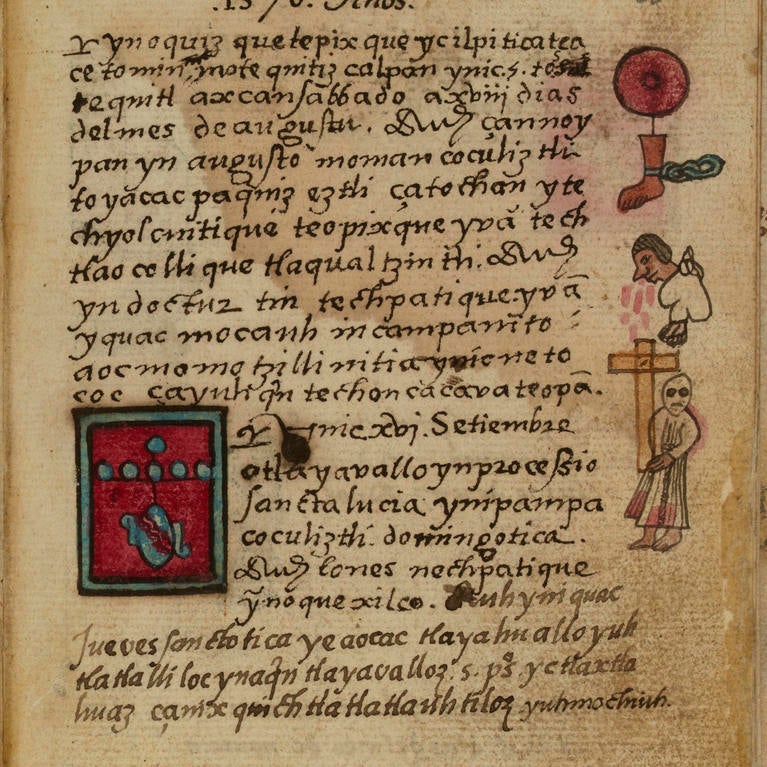 .1576. Años.
yn oquiz quetepixque ycilpiticatca
ce tomin, mote quitiz calpan ynic.s. tosal
tequitl axcan sabbado a xviij dias
del mes de augusto. Auh çannoy
pan yn augusto moman cocoliztli
toyacac paquiz eztli çatochan yte
chyolcuitique teopixque yvã tech
tlaocollique tlaqualtzintli. Auh
yn doctur tin techpatique. yvã
yquac mocauh incampanito
aocmo motzillinitia ynicneto
coc çayuhqn techoncacavateopã.
ynic.xvj. Setiembre
otlayavalloynprocessio
sancta lucia ynipampa
cocoliztli. domingotica.
Auh lones nechpatique
ỹnoquexilco. Auhyniquac
Juevessanctotica yeaocac tlayahualloyuh
tlatlallilocynaqn tlayavalloz.s. yctlaxtla
huaz çanixquich tlatlatlauhtiloz yuhmochiuh.